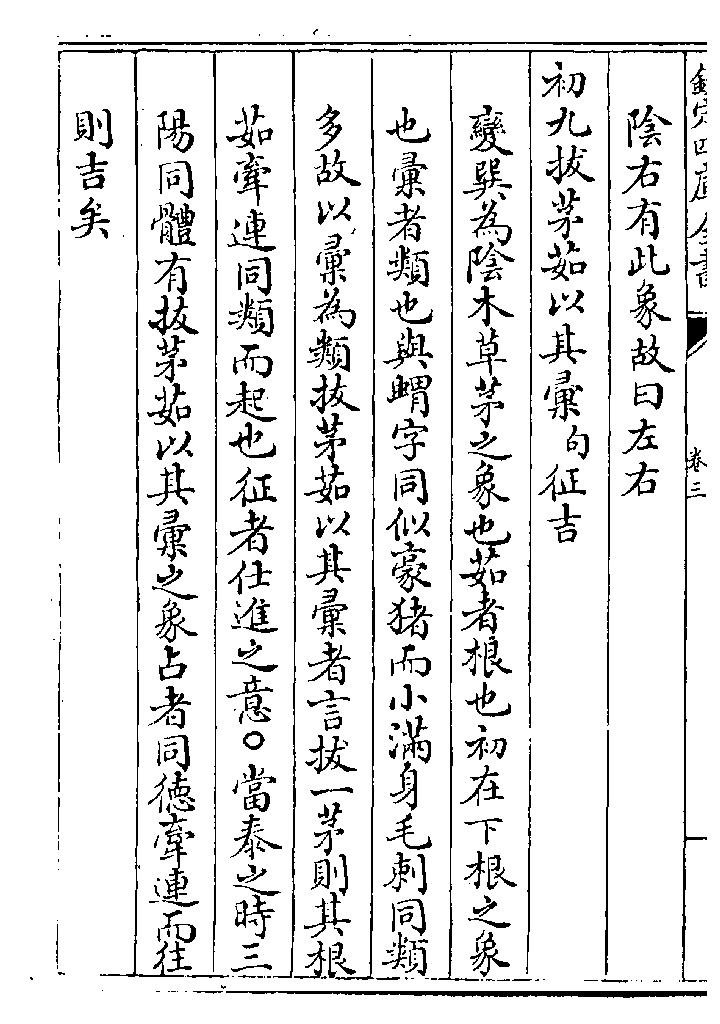 欽定四庫全書
卷三
陰右有此象故曰左右
初九拔茅茹以其彙句征吉
變巽為陰木草茅之象也茹者根也初在下根之象
也彙者類也與蝟字同似豪猪而小滿身毛刺同類
多故以彙為類拔茅茹以其彙者言拔一茅則其根
茹牽連同類而起也征者仕進之意○當泰之時三
陽同體有拔茅茹以其彙之象占者同德牽連而往
則吉矣